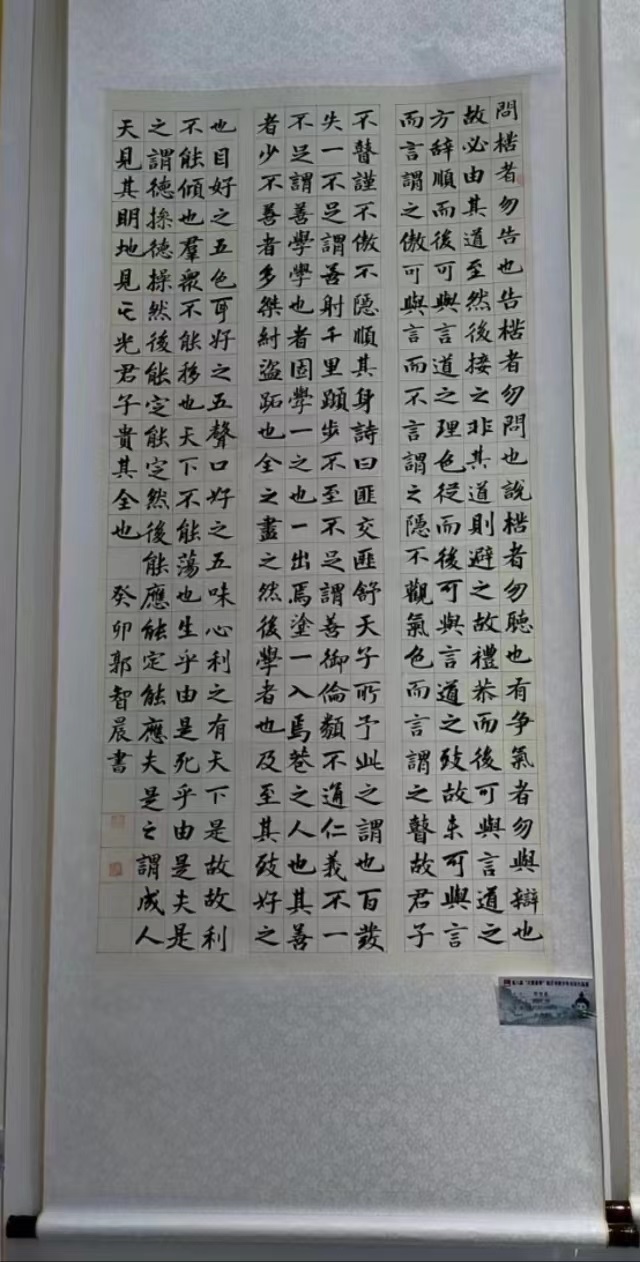 問楛者勿告也告楛者勿問也說楛者勿聽也有争氣者勿與辯也
故必由其道至然後接之非其道則避之故禮恭而後可與言道之
方辭順而後可與言道之理色從而後可與言道之致故未可與言
而言謂之傲可與言而不言謂之隱不觀氣色而言謂之瞽故君子
不瞽謹不傲不隱順其身詩曰匪交匪舒天子所予此之謂也百發
失一不足謂善射千里蹞步不至不足謂善御倫類不通仁義不一
不足謂善學學也者固學一之也一出焉塗一入焉巷之人也其善
者少不善者多桀紂盜跖也全之盡之然後學者也及至其致好之
也目好之五色耳好之五聲口好之五味心利之有天下是故故利
不能傾也羣衆不能移也天下不能蕩也生乎由是死乎由是夫是
之謂德操德操然後能定能定然後能應能定能應夫是之謂成人
天見其明地見亓光君子貴其全也 癸卯郭智晨書